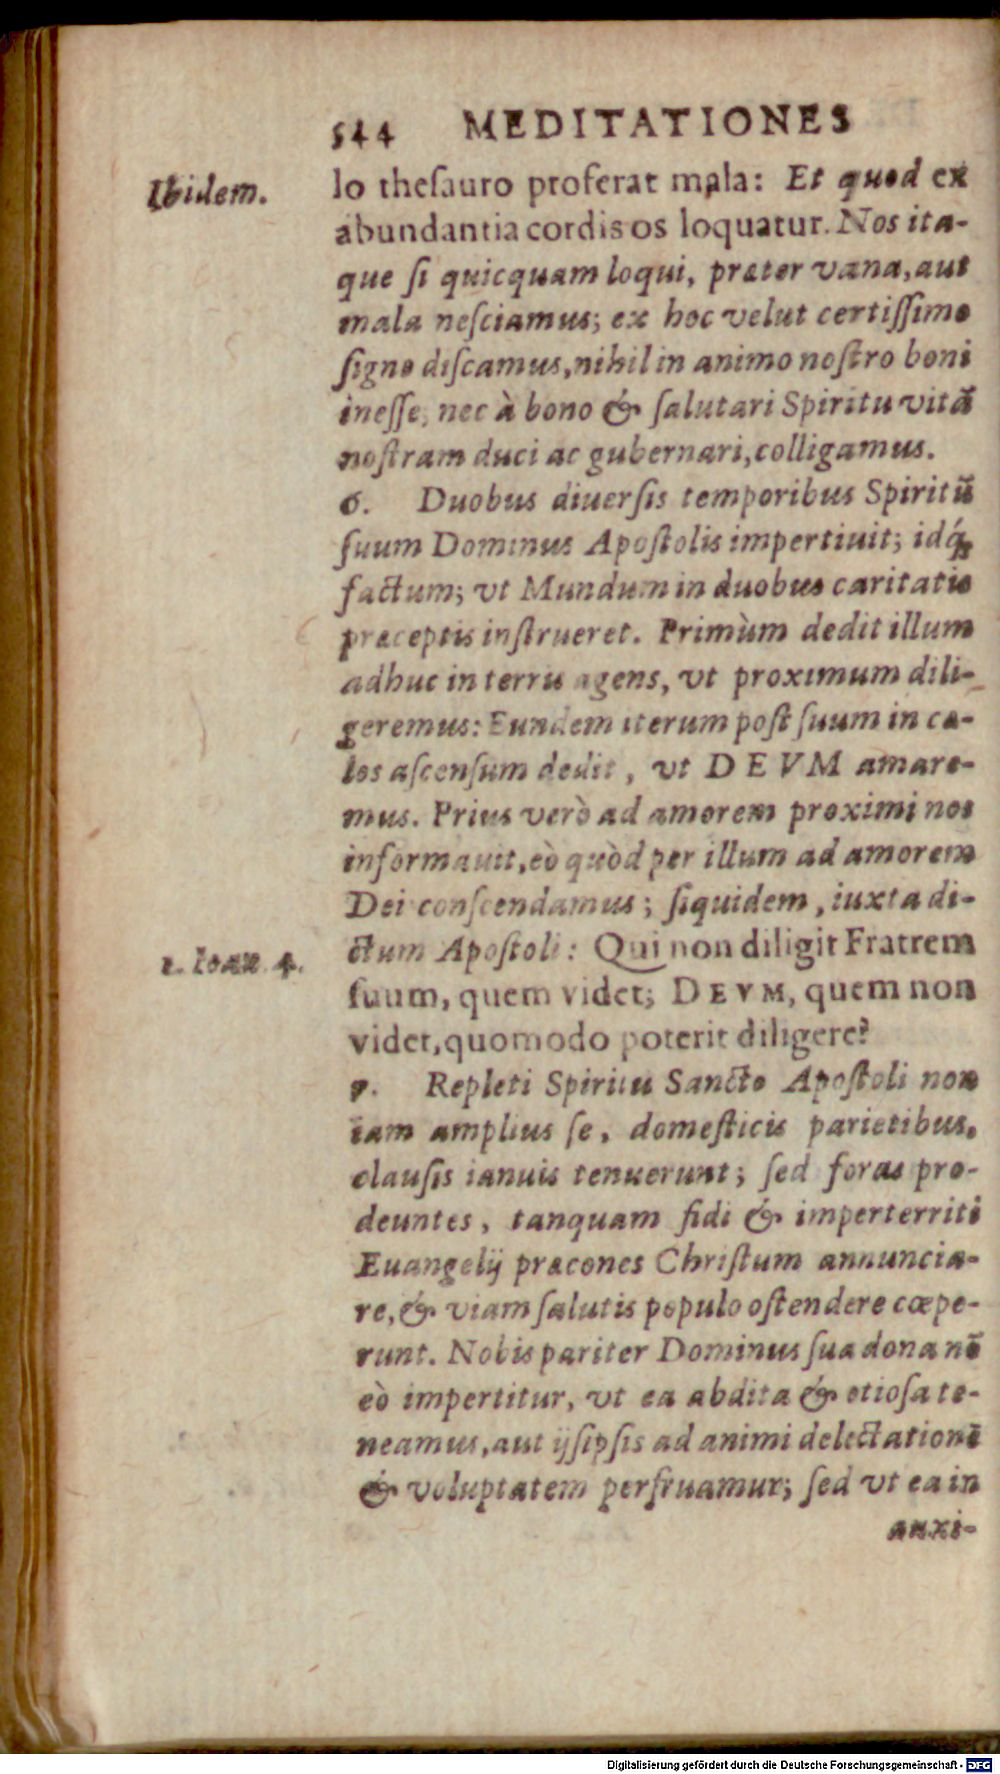 544 MEDITATIONES
Ibidem.
lo theſauro proferat mala: Et quod ex
abundantia cordis os loquatur. Nos ita-
que ſi quicquam loqui, præter vana, aut
mala neſciamus; ex hoc velut certiſſimo
ſigno diſcamus, nihil in animo noſtro boni
ineſſe, nec à bono & ſalutari Spiritu vitã
noſtram duci ac gubernari, colligamus.
6. Duobus diuerſis temporibus Spiritũ
ſuum Dominus Apoſtolis impertiuit; idq́;
factum; vt Mundum in duobus caritatis
præceptis inſtrueret. Primùm dedit illum
adhuc in terris agens, vt proximum dili-
geremus: Eundem iterum poſt ſuum in cæ-
los aſcenſum dedit, vt DEVM amare-
mus. Prius verò ad amorem proximi nos
informauit, eò quòd per illum ad amorem
Dei conſcendamus; ſiquidem, iuxta di-
1. Ioan. 4.
ctum Apoſtoli: Qui non diligit Fratrem
ſuum, quem videt; DEVM, quem non
videt, quomodo poterit diligere?
7. Repleti Spiritu Sancto Apoſtoli non
iam amplius ſe, domeſticis parietibus,
clauſis ianuis tenuerunt; ſed foras pro-
deuntes, tanquam fidi & imperterriti
Euangelij præcones Chriſtum annuncia-
re, & viam ſalutis populo oſtendere cœpe-
runt. Nobis pariter Dominus ſua dona nõ
eò impertitur, vt ea abdita & otioſa te-
neamus, aut ijſipſis ad animi delectationẽ
& voluptatem perfruamur; ſed vt ea in
auxi-
Digitalisierung gefördert durch die Deutsche Forschungsgemeinschaft - DFG